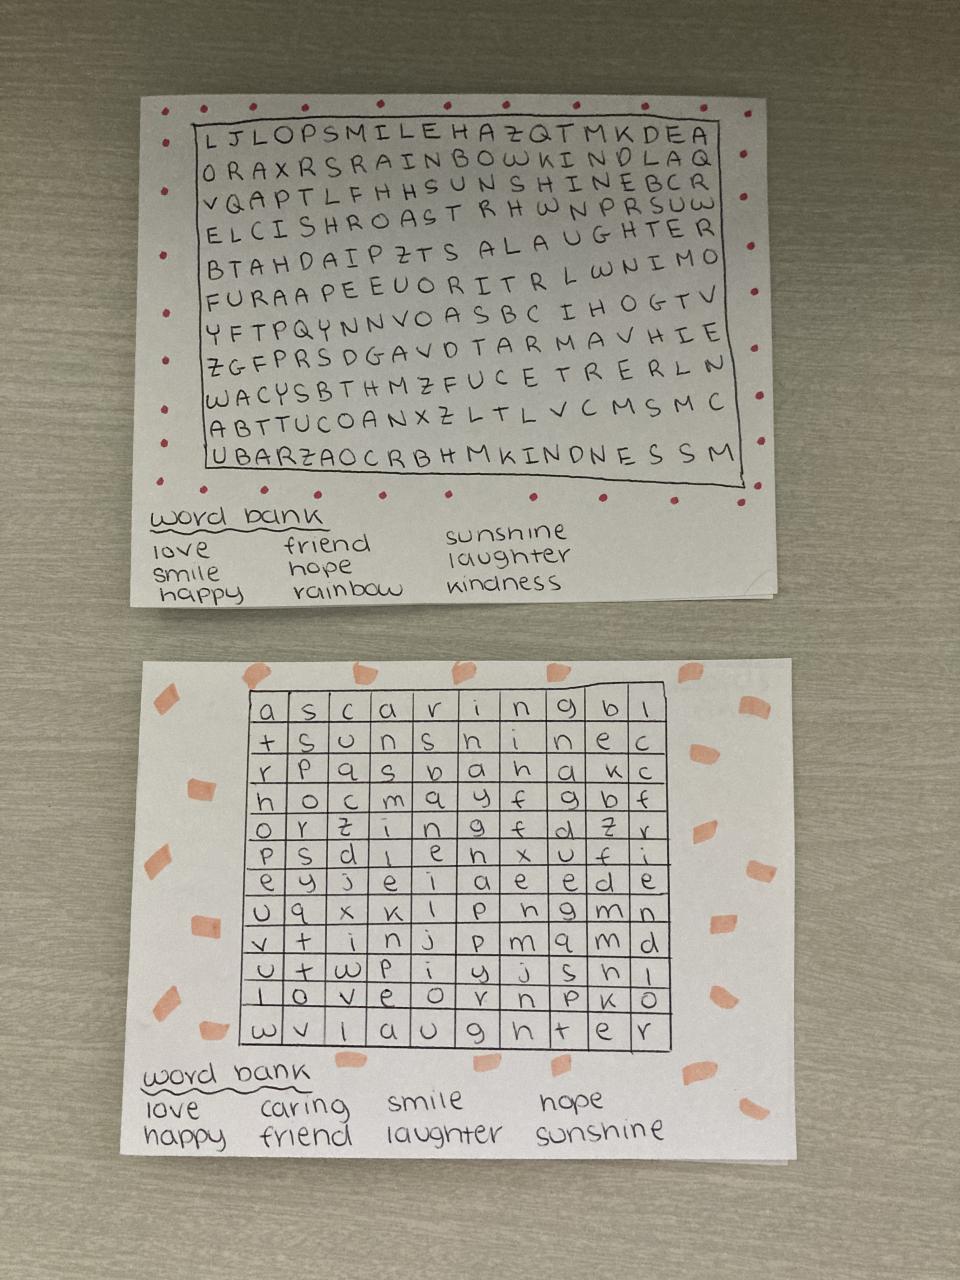 L J L O P S M I L E H A Z Q T M K D E A
O R A X R S R A I N B O W K I N D L A Q
V Q A P T L F H H S U N S H I N E B C R
E L C I S H R O A S T R H W N P R S U W
B T A H D A I P Z T S A L A U G H T E R
F U R A A P E E U O R I T R L W N I M O
Y F T P Q Y N N V O A S B C I H O G T V
Z G F P R S D G A V D T A R M A V H I E
W A C Y S B T H M Z F U C E T R E R L N
A B T T U C O A N X Z L T L V C M S M C
U B A R Z A O C R B H M K I N D N E S S M
word bank
love friend sunshine
smile hope laughter
happy rainbow kindness
a s c a r i n g b l
t s u n s h i n e c
r p a s b a h a k c
h o c m a y f g b f
o r z i n g f d z r
p s d l e h x u f i
e y j e i a e e d e
u q x k l p h g m n
v t i n j p m a m d
u t w p i y j s h l
l o v e o r n p k o
w v l a u g h t e r
word bank
love caring smile hope
happy friend laughter sunshine